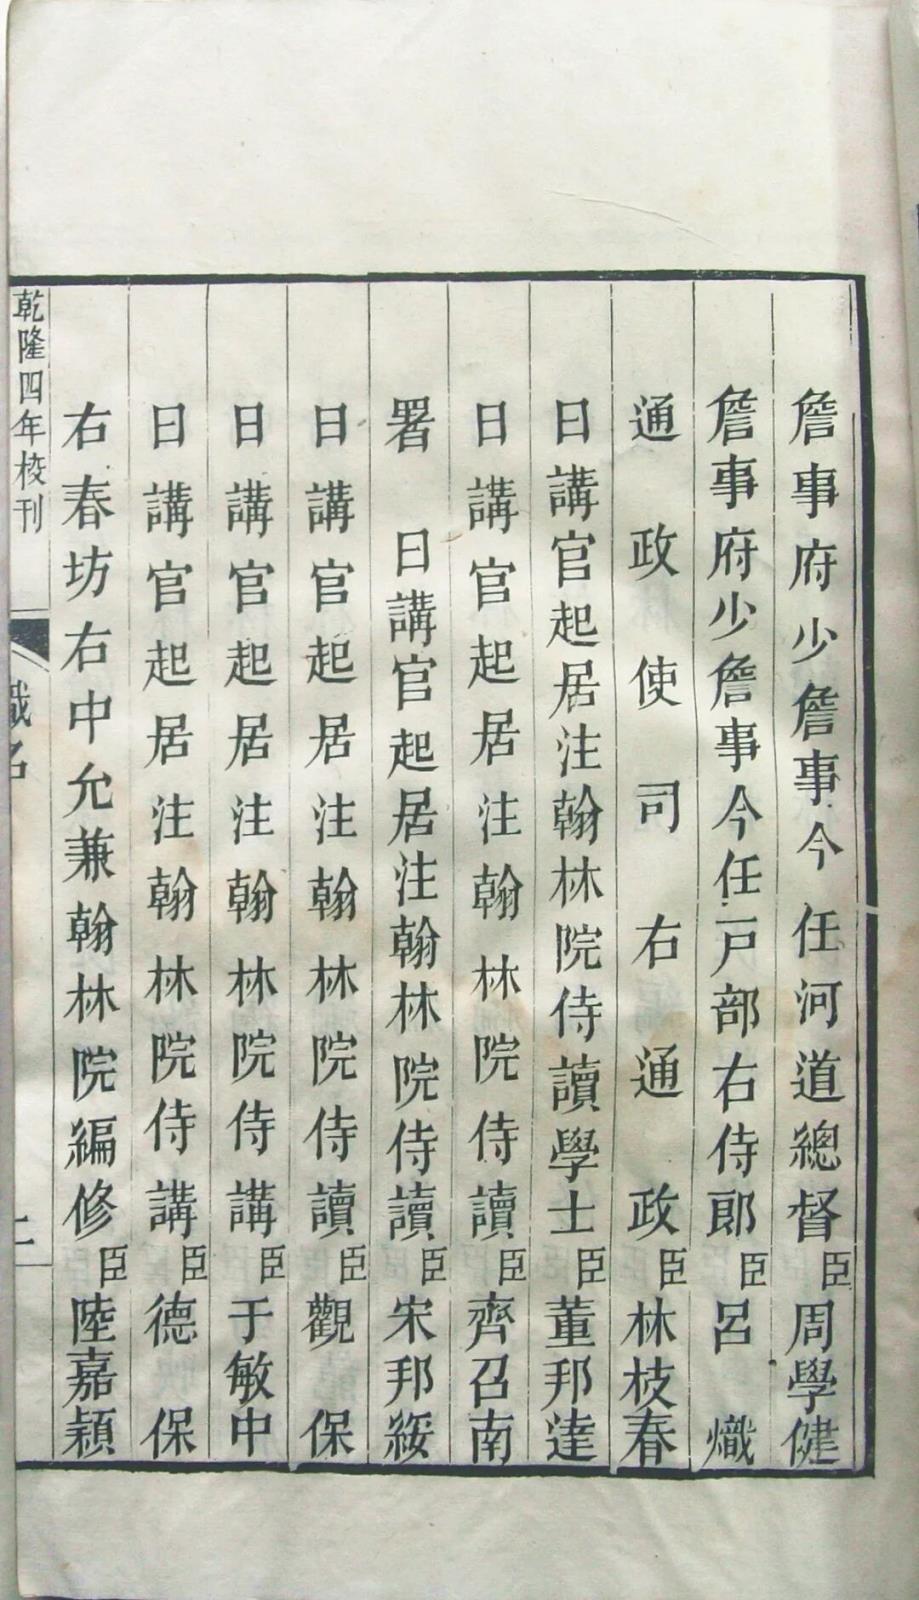 詹事府少詹事今任河道總督臣周學健
詹事府少詹事今任戸部右侍郎臣呂熾
通政使司右通政臣林枝春
日講官起居注翰林院侍讀學士臣董邦達
日講官起居注翰林院侍讀臣齊召南
署日講官起居注翰林院侍讀臣宋邦綏
日講官起居注翰林院侍讀臣觀保
日講官起居注翰林院侍講臣于敏中
日講官起居注翰林院侍講臣德保
右春坊右中允兼翰林院編修臣陸嘉穎
乾隆四年校刊
職名